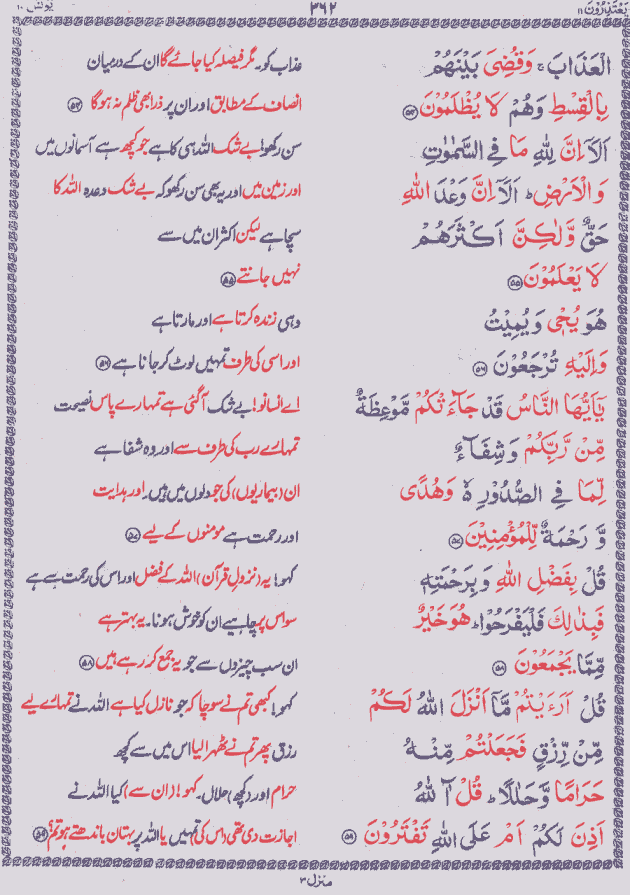 یَعْتَذِرُوْنَ ۱۱ ۳۶۲ یونس ۱۰
الْعَذَابَ ۚ وَقُضِیَ بَیْنَهُمْ
بِالْقِسْطِ وَهُمْ لَا یُظْلَمُوْنَ ۵۴
اَلَاۤ اِنَّ لِلّٰهِ مَا فِی السَّمٰوٰتِ
وَالْاَرْضِ ؕ اَلَاۤ اِنَّ وَعْدَ اللّٰهِ
حَقٌّ وَّلٰكِنَّ اَكْثَرَهُمْ
لَا یَعْلَمُوْنَ ۵۵
هُوَ یُحْیٖ وَیُمِیْتُ
وَاِلَیْهِ تُرْجَعُوْنَ ۵۶
یٰۤاَیُّهَا النَّاسُ قَدْ جَآءَتْكُمْ مَّوْعِظَةٌ
مِّنْ رَّبِّكُمْ وَشِفَآءٌ
لِّمَا فِی الصُّدُوْرِ ۙ وَهُدًی
وَّ رَحْمَةٌ لِّلْمُؤْمِنِیْنَ ۵۷
قُلْ بِفَضْلِ اللّٰهِ وَبِرَحْمَتِهٖ
فَبِذٰلِكَ فَلْیَفْرَحُوْا ؕ هُوَ خَیْرٌ
مِّمَّا یَجْمَعُوْنَ ۵۸
قُلْ اَرَءَیْتُمْ مَّاۤ اَنْزَلَ اللّٰهُ لَكُمْ
مِّنْ رِّزْقٍ فَجَعَلْتُمْ مِّنْهُ
حَرَامًا وَّحَلٰلًا ؕ قُلْ آٰللّٰهُ
اَذِنَ لَكُمْ اَمْ عَلَی اللّٰهِ تَفْتَرُوْنَ ۵۹
عذاب کو۔ مگر فیصلہ کیا جائے گا ان کے درمیان
انصاف کے مطابق اور ان پر ذرا بھی ظلم نہ ہوگا ۵۴
سن رکھو! بے شک اللہ ہی کا ہے جو کچھ ہے آسمانوں میں
اور زمین میں اور یہ بھی سن رکھو کہ بے شک وعدہ اللہ کا
سچا ہے لیکن اکثر ان میں سے
نہیں جانتے ۵۵
وہی زندہ کرتا ہے اور مارتا ہے
اور اسی کی طرف تمہیں لوٹ کر جانا ہے ۵۶
اے انسانو! بے شک آگئی ہے تمہارے پاس نصیحت
تمہارے رب کی طرف سے اور وہ شفا ہے
ان (بیماریوں) کی جو دلوں میں ہیں۔ اور ہدایت
اور رحمت ہے مومنوں کے لیے ۵۷
کہو! یہ (نزول قرآن) اللہ کے فضل اور اس کی رحمت سے ہے
سو اس پر چاہیے ان کو خوش ہونا۔ یہ بہتر ہے
ان سب چیزوں سے جو یہ جمع کر رہے ہیں ۵۸
کہو! کبھی تم نے سوچا کہ جو نازل کیا ہے اللہ نے تمہارے لیے
رزق پھر تم نے ٹھہرا لیا اس میں سے کچھ
حرام اور (کچھ) حلال۔ کہو! (ان سے) کیا اللہ نے
اجازت دی تھی (اس کی) تمہیں یا اللہ پر بہتان باندھتے ہو تم؟ ۵۹
منزل ۳